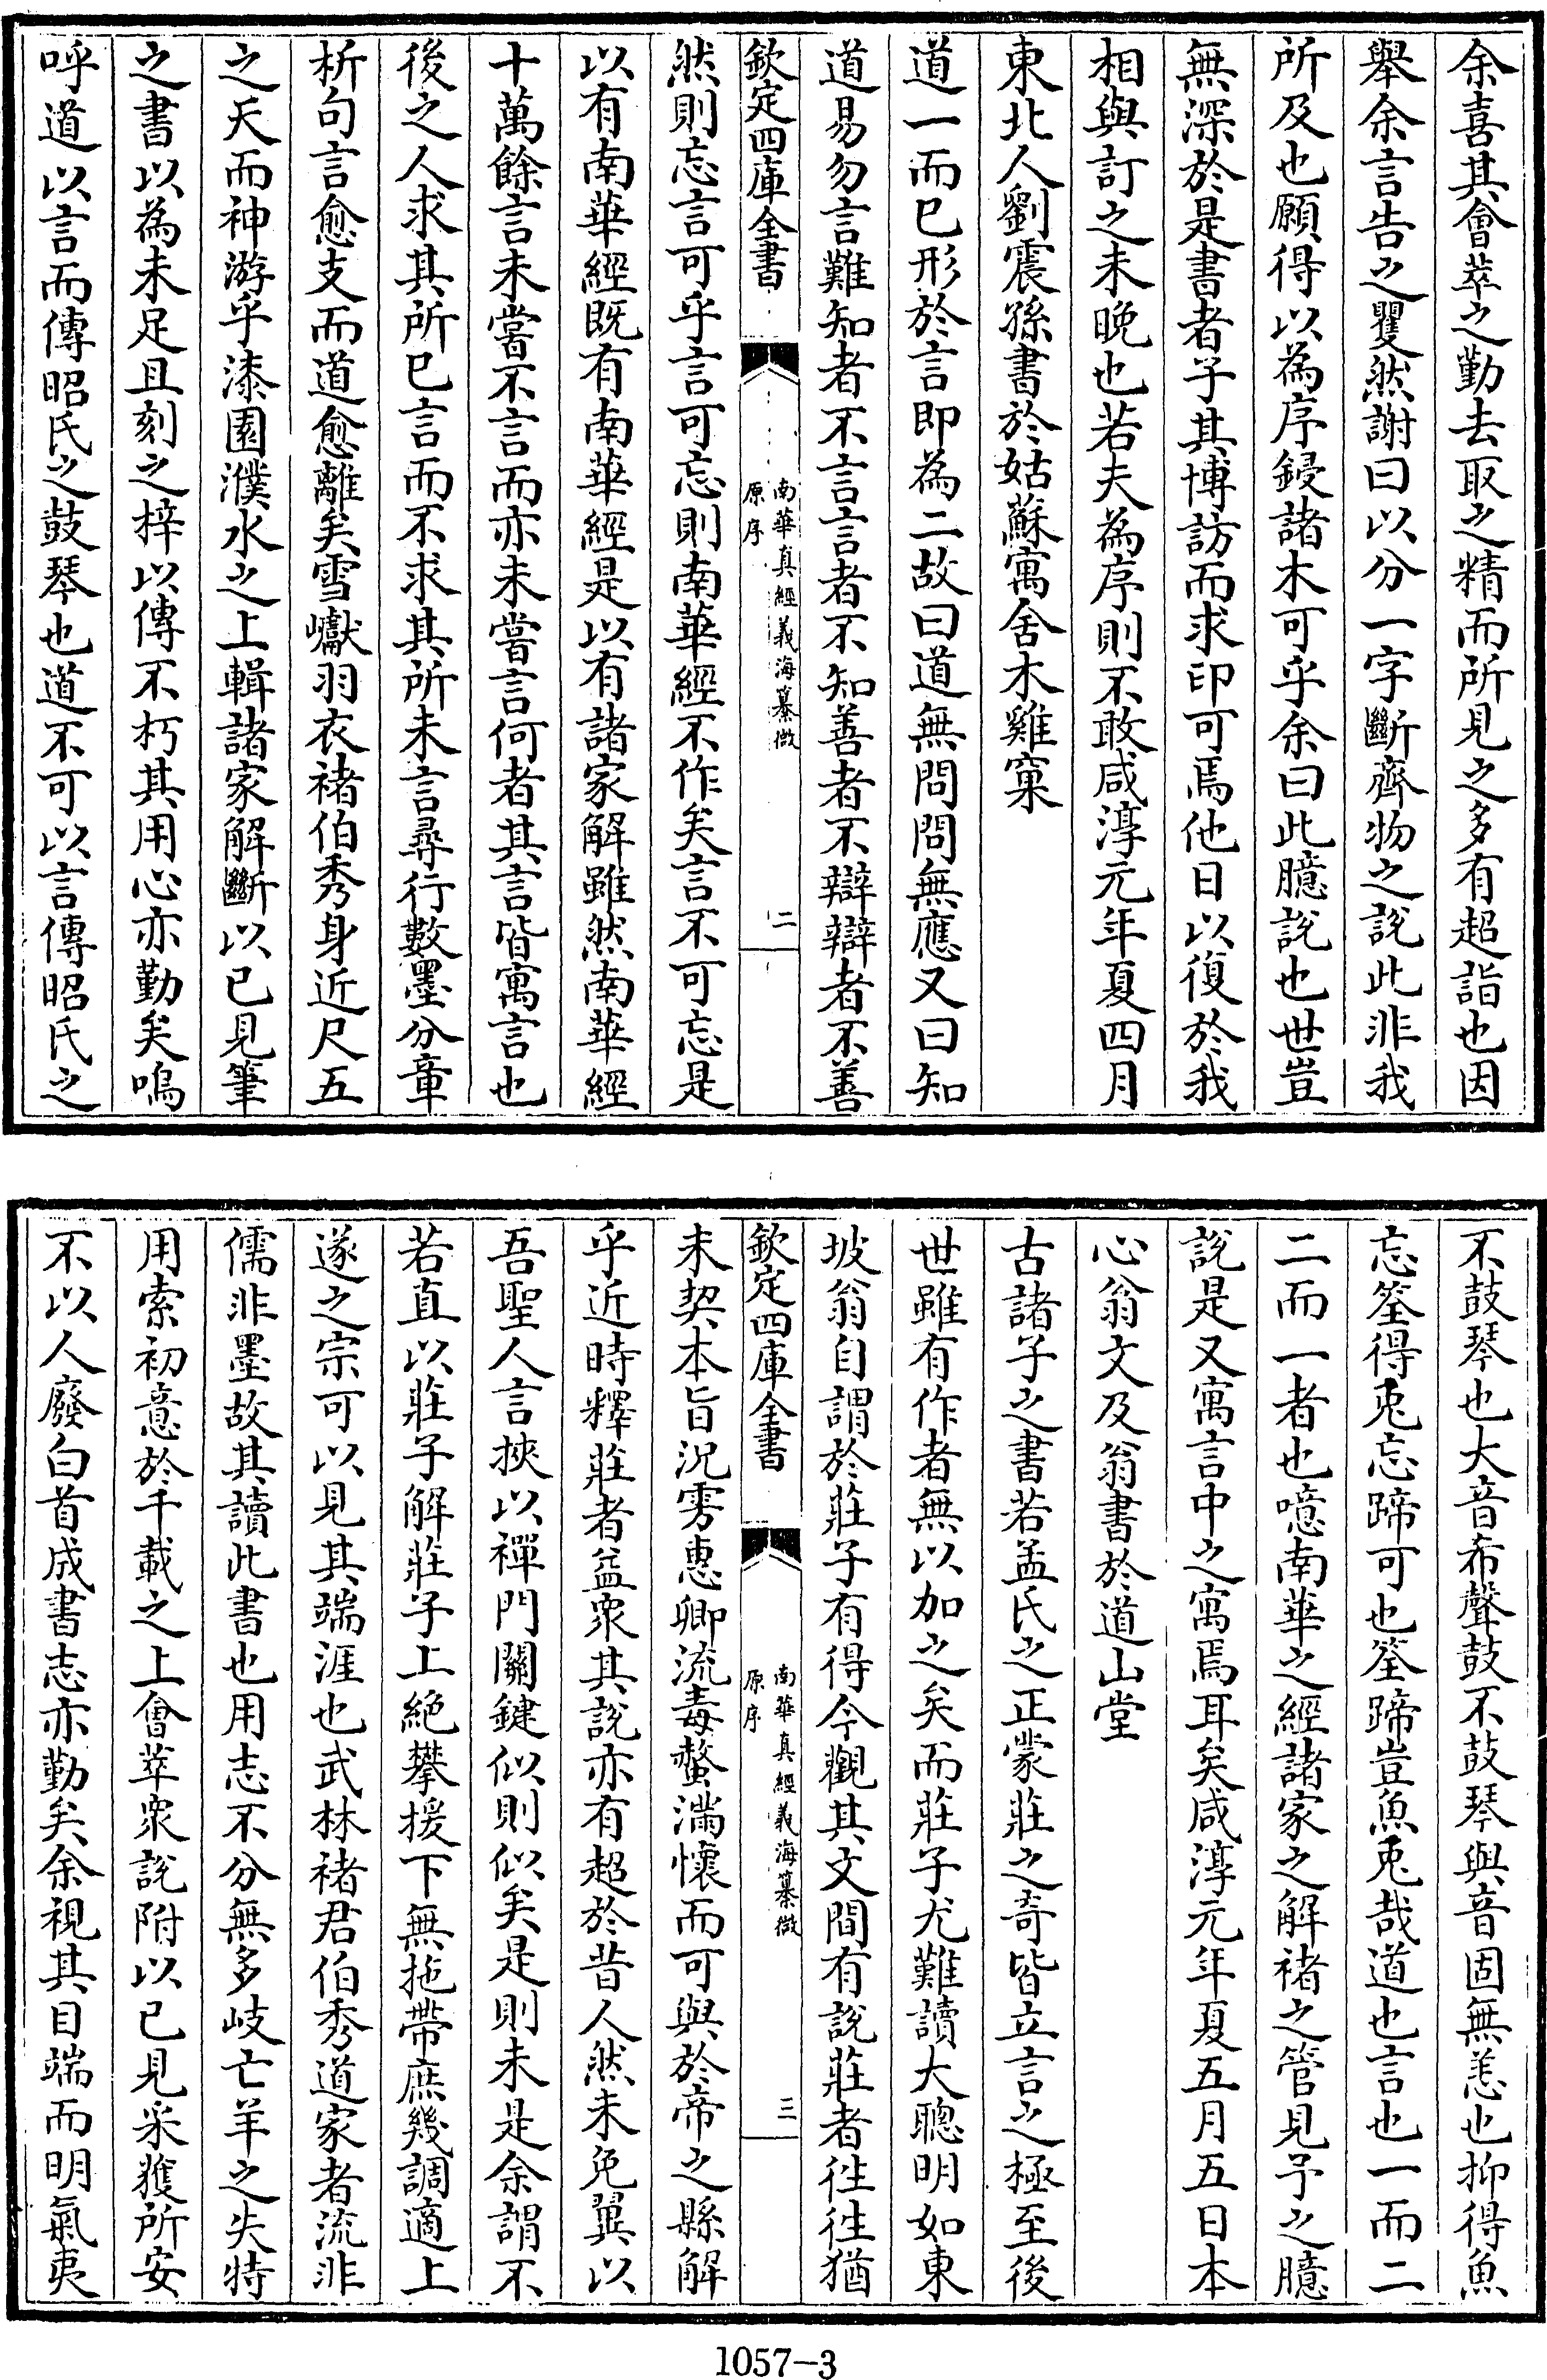 余喜其會萃之勤去取之精而所見之多有超詣也因
舉余言告之瞿然謝曰以分一字斷齊物之說此非我
所及也願得以為序鋟諸木可乎余曰此臆說也世豈
無深於是書者子其博訪而求印可焉他日以復於我
相與訂之未晩也若夫為序則不敢咸淳元年夏四月
東北人劉震孫書於姑蘇寓舍木雞窠
道一而已形於言即為二故曰道無問問無應又曰知
道易勿言難知者不言言者不知善者不辯辯者不善
欽定四庫全書
南華真經義海纂微
原序
二
然則忘言可乎言可忘則南華經不作矣言不可忘是
以有南華經既有南華經是以有諸家解雖然南華經
十萬餘言未嘗不言而亦未嘗言何者其言皆寓言也
後之人求其所已言而不求其所未言尋行數墨分章
析句言愈支而道愈離矣雪巘羽衣褚伯秀身近尺五
之天而神游乎漆園濮水之上輯諸家解斷以已見筆
之書以為未足且刻之梓以傳不朽其用心亦勤矣嗚
呼道以言而傳昭氏之鼓琴也道不可以言傳昭氏之
不鼓琴也大音希聲鼓不鼓琴與音固無恙也抑得魚
忘筌得兎忘蹄可也筌蹄豈魚兎哉道也言也一而二
二而一者也噫南華之經諸家之解褚之管見予之臆
說是又寓言中之寓焉耳矣咸淳元年夏五月五日本
心翁文及翁書於道山堂
古諸子之書若孟氏之正蒙莊之奇皆立言之極至後
世雖有作者無以加之矣而莊子尤難讀大聰明如東
坡翁自謂於莊子有得今觀其文間有說莊者徃徃猶
欽定四庫全書
南華真經義海纂微
原序
三
未契本旨况雱惠卿流毒螫滿懷而可與於帝之縣解
乎近時釋莊者益衆其說亦有超於昔人然未免翼以
吾聖人言挾以禪門關鍵似則似矣是則未是余謂不
若直以莊子解莊子上絶攀援下無拖帶庶幾調適上
遂之宗可以見其端涯也武林褚君伯秀道家者流非
儒非墨故其讀此書也用志不分無多岐亡羊之失特
用索初意於千載之上會萃衆說附以已見采獲所安
不以人廢白首成書志亦勤矣余視其目端而明氣夷
1057-3